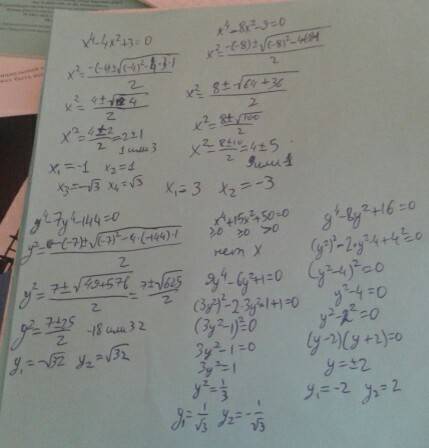 x⁴-4x²+3=0
x²=(-(-4)±√((-4)²-4·3·1))/2
x²=(4±√4)/2
x²=(4±2)/2=2±1
1 или 3
x₁=-1 x₂=1
x₃=-√3 x₄=√3
x⁴-8x²-9=0
x²=(8±√(64+36))/2
x²=(8±√100)/2
x²=(8±10)/2=4±5
x₁=3 x₂=-3
y⁴-7y²-144=0
y²=(-(-7)±√((-7)²-4·(-144)·1))/2
y²=(7±√(49+576))/2=(7±√625)/2
y²=(7±25)/2 -18 или 32
y₁=-√32 y₂=√32
x⁴+15x²+50=0
≥0 ≥0 >0
нет x
9y⁴-6y²+1=0
(3y²)²-2·3y²·1+1=0
(3y²-1)²=0
3y²-1=0
3y²=1
y²=1/3
y₁=1/√3 y₂=-1/√3
y⁴-8y²+16=0
(y²)²-2·y²·4+4²=0
(y²-4)²=0
y²-4=0
y²-2²=0
(y-2)(y+2)=0
y=±2
y₁=-2 y₂=2